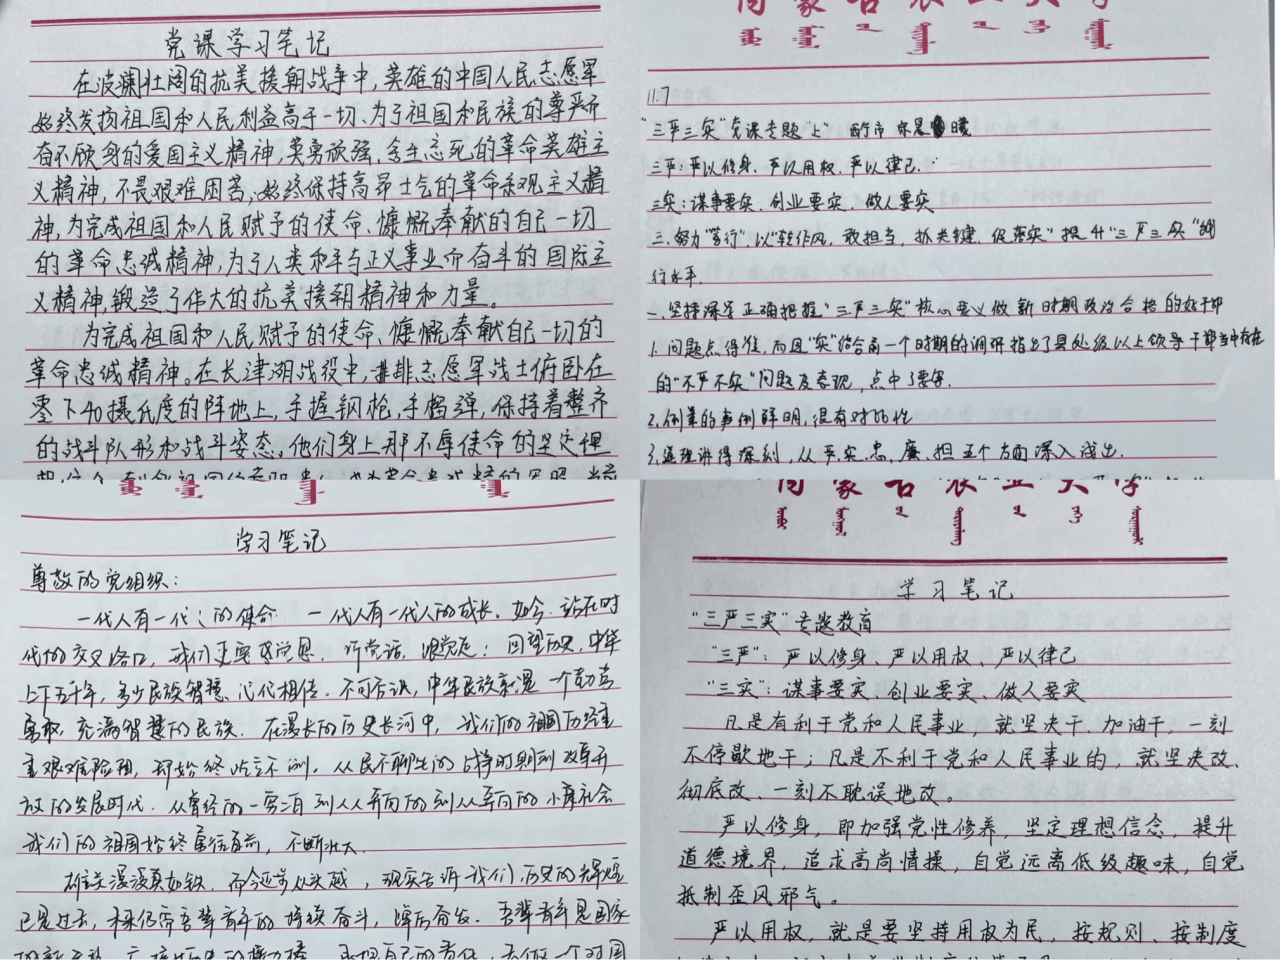 党课学习笔记
在波澜壮阔的抗美援朝战争中,英雄的中国人民志愿军
始终发扬祖国和人民利益高于一切、为了祖国和民族的尊严而
奋不顾身的爱国主义精神,英勇顽强、舍生忘死的革命英雄主
义精神,不畏艰难困苦,始终保持高昂士气的革命乐观主义精
神,为完成祖国和人民赋予的使命、慷慨奉献的自己一切
的革命忠诚精神,为了人类和平与正义事业而奋斗的国际主
义精神,锻造了伟大的抗美援朝精神和力量。
为完成祖国和人民赋予的使命、慷慨奉献自己一切的
革命忠诚精神。在长津湖战役中,一排排志愿军战士俯卧在
零下40摄氏度的阵地上,手握钢枪、手榴弹,保持着整齐
的战斗队形和战斗姿态。他们身上那不辱使命的坚定理
内蒙古农业大学
11.7
"三严三实"党课专题"上"
三严:严以修身、严以用权、严以律己.
三实:谋事要实、创业要实、做人要实
三.努力"笃行",以"转作风、敢担当、抓关键、促落实"提升"三严三实"践
行水平.
一、坚持深学 正确把握"三严三实"核心要义做新时期政治合格的好干部
1.问题点得准,而且"实"结合前一个时期的调研指出了县处级以上领导干部当中存在
的"不严不实"问题及表现,点中了要害.
2.列举的事例鲜明,很有对比性
3.道理讲得深刻,从严、实、忠、廉、担五个方面深入浅出.
学习笔记
尊敬的党组织:
一代人有一代人的使命 一代人有一代人的成长. 如今.站在时
代的交叉路口,我们更要感党恩、听党话、跟党走:回望历史,中华
上下五千年,多少民族智慧、心心相传.不可否认,中华民族就是一个勤劳
勇敢,充满智慧的民族.在漫长的历史长河中,我们的祖国历经
艰难险阻,却始终屹立不倒.从民不聊生的战争时期到改革开
放的发展时代.从曾经的一穷二白到人人平等的小康社会
我们的祖国始终勇往直前,不断壮大.
雄关漫漫真如铁,而今迈步从头越,现实告诉我们,历史的辉煌
已是过去,未来仍需吾辈青年的继续奋斗,踔厉奋发.吾辈青年是国家
内蒙古农业大学
学习笔记
"三严三实"专题教育
"三严":严以修身、严以用权、严以律己
"三实":谋事要实、创业要实、做人要实
凡是有利于党和人民事业,就坚决干、加油干,一刻
不停歇地干;凡是不利于党和人民事业的,就坚决改、
彻底改、一刻不耽误地改。
严以修身,即加强党性修养,坚定理想信念,提升
道德境界,追求高尚情操,自觉远离低级趣味,自觉
抵制歪风邪气。
严以用权,就是要坚持用权为民,按规则、按制度